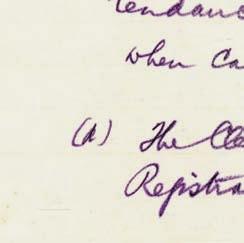 tendanc
when ca
(A) The Cle
Registra